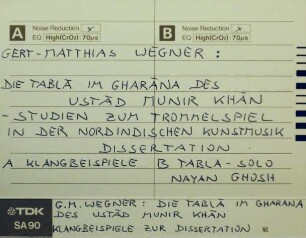 A Noise Reduction x B Noise Reduction x
EQ High(CrO2) 70µs EQ High(CrO2) 70µs
GERT-MATTHIAS WEGNER:
DIE TABLĀ IM GHARĀNA DES
USTĀD MUNIR KHĀN
- STUDIEN ZUM TROMMELSPIEL
IN DER NORDINDISCHEN KUNSTMUSIK
DISSERTATION
A KLANGBEISPIELE B TABLA-SOLO
NAYAN GHOSH
TDK
SA90
G.M. WEGNER: DIE TABLĀ IM GHARANA
DES USTĀD MUNIR KHĀN
KLANGBEISPIELE ZUR DISSERTATION